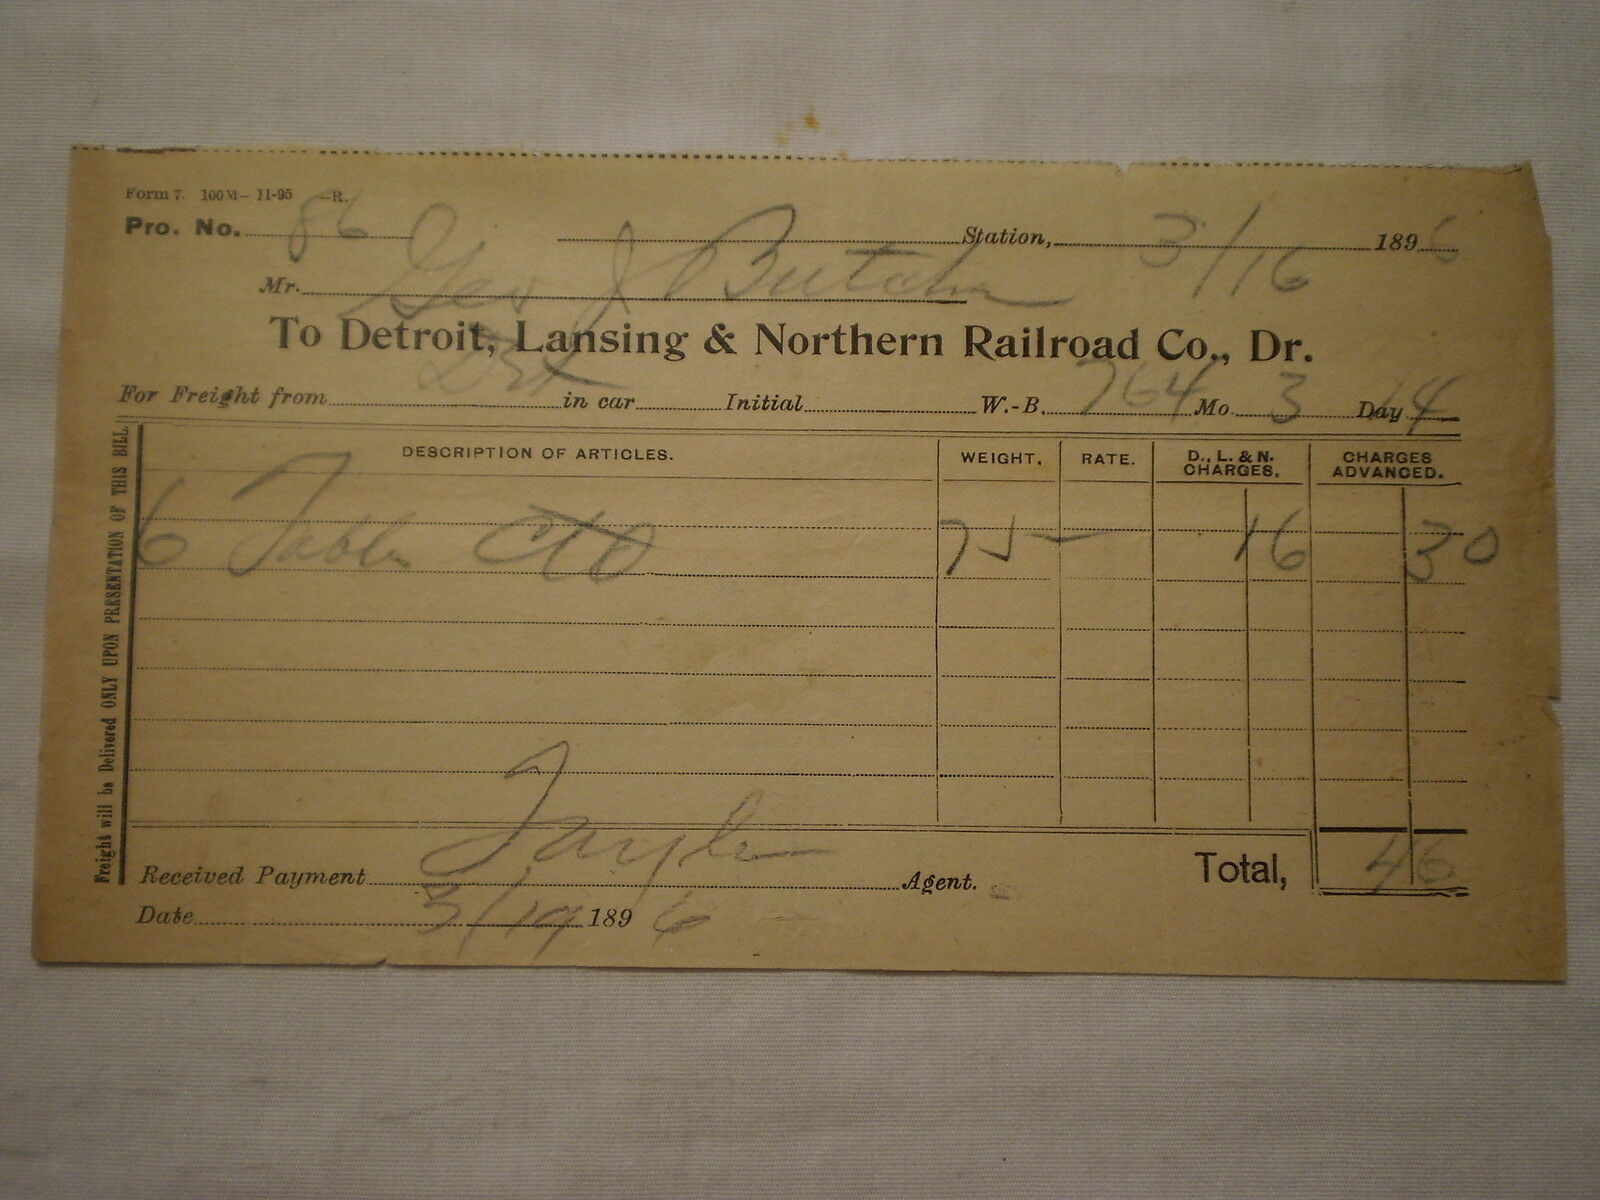 Form 7. 100M- 11-95 -R.
Pro. No. 86 Station, 3/16 1896
Mr. Geo J Butcher
To Detroit, Lansing & Northern Railroad Co., Dr.
For Freight from Det in car Initial W.-B. 764 Mo 3 Day 14
Freight will be Delivered ONLY UPON PRESENTATION OF THIS BILL.
DESCRIPTION OF ARTICLES. WEIGHT. RATE. D., L. & N. CHARGES. CHARGES ADVANCED.
6 Table 75 - 16 30
Total, 46
Received Payment Taylor Agent.
Date 3/19 1896